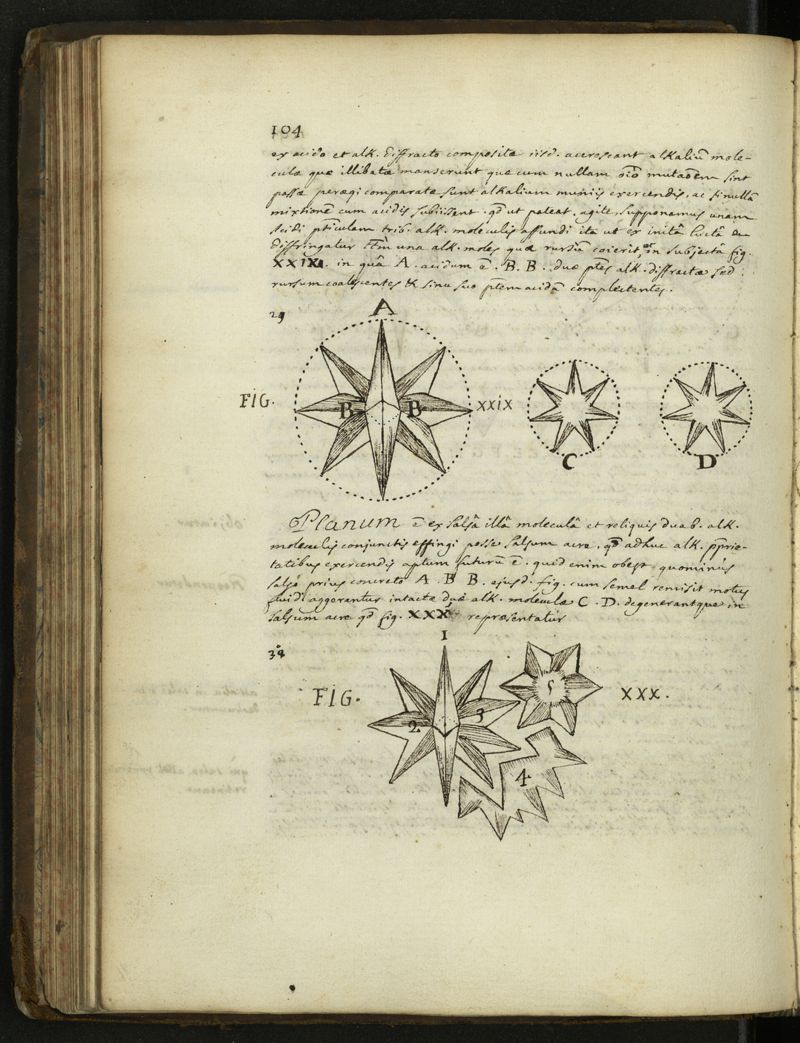 104
ex acido et alk. diffracto composita iisd. accrescant alkaliū mole-
culæ quæ illibatæ manserunt quæ cum nullam mutaōem sint
passæ peræqi comparatæ sunt alkalium muniis exercendis, ac si nullā
mixtionē cum acidis subiissent. qd ut pateat, agite, supponamus unam
acidi pticulam trib. alk. moleculis affundi ita ut ex initâ luctâ
diffringatur una alk. moles quæ rursū coierit, in subjectâ fig.
XXIX. in quâ A. acidum ē. B. B. duæ ptes alk. diffractæ sed
rursum coalescentes & sinu suo ptem acidā complectentes.
29
A
FIG. B B XXIX
C D
Planum ē ex salsâ illâ moleculâ et reliquis duab. alk.
moleculis conjunctis effingi posse salsum acre, qd adhuc alk. pprie-
tatibus exercendis aptum futurū ē. quid enim obest quominus
salso prius concreto A B B. ejusd. fig. cum semel remisit motus
fluidi aggerantur intactæ duæ alk. moleculæ C. D. degenerantque in
salsum acre qd fig. XXX repræsentatur
1
30
FIG. 2 3 5 XXX.
4